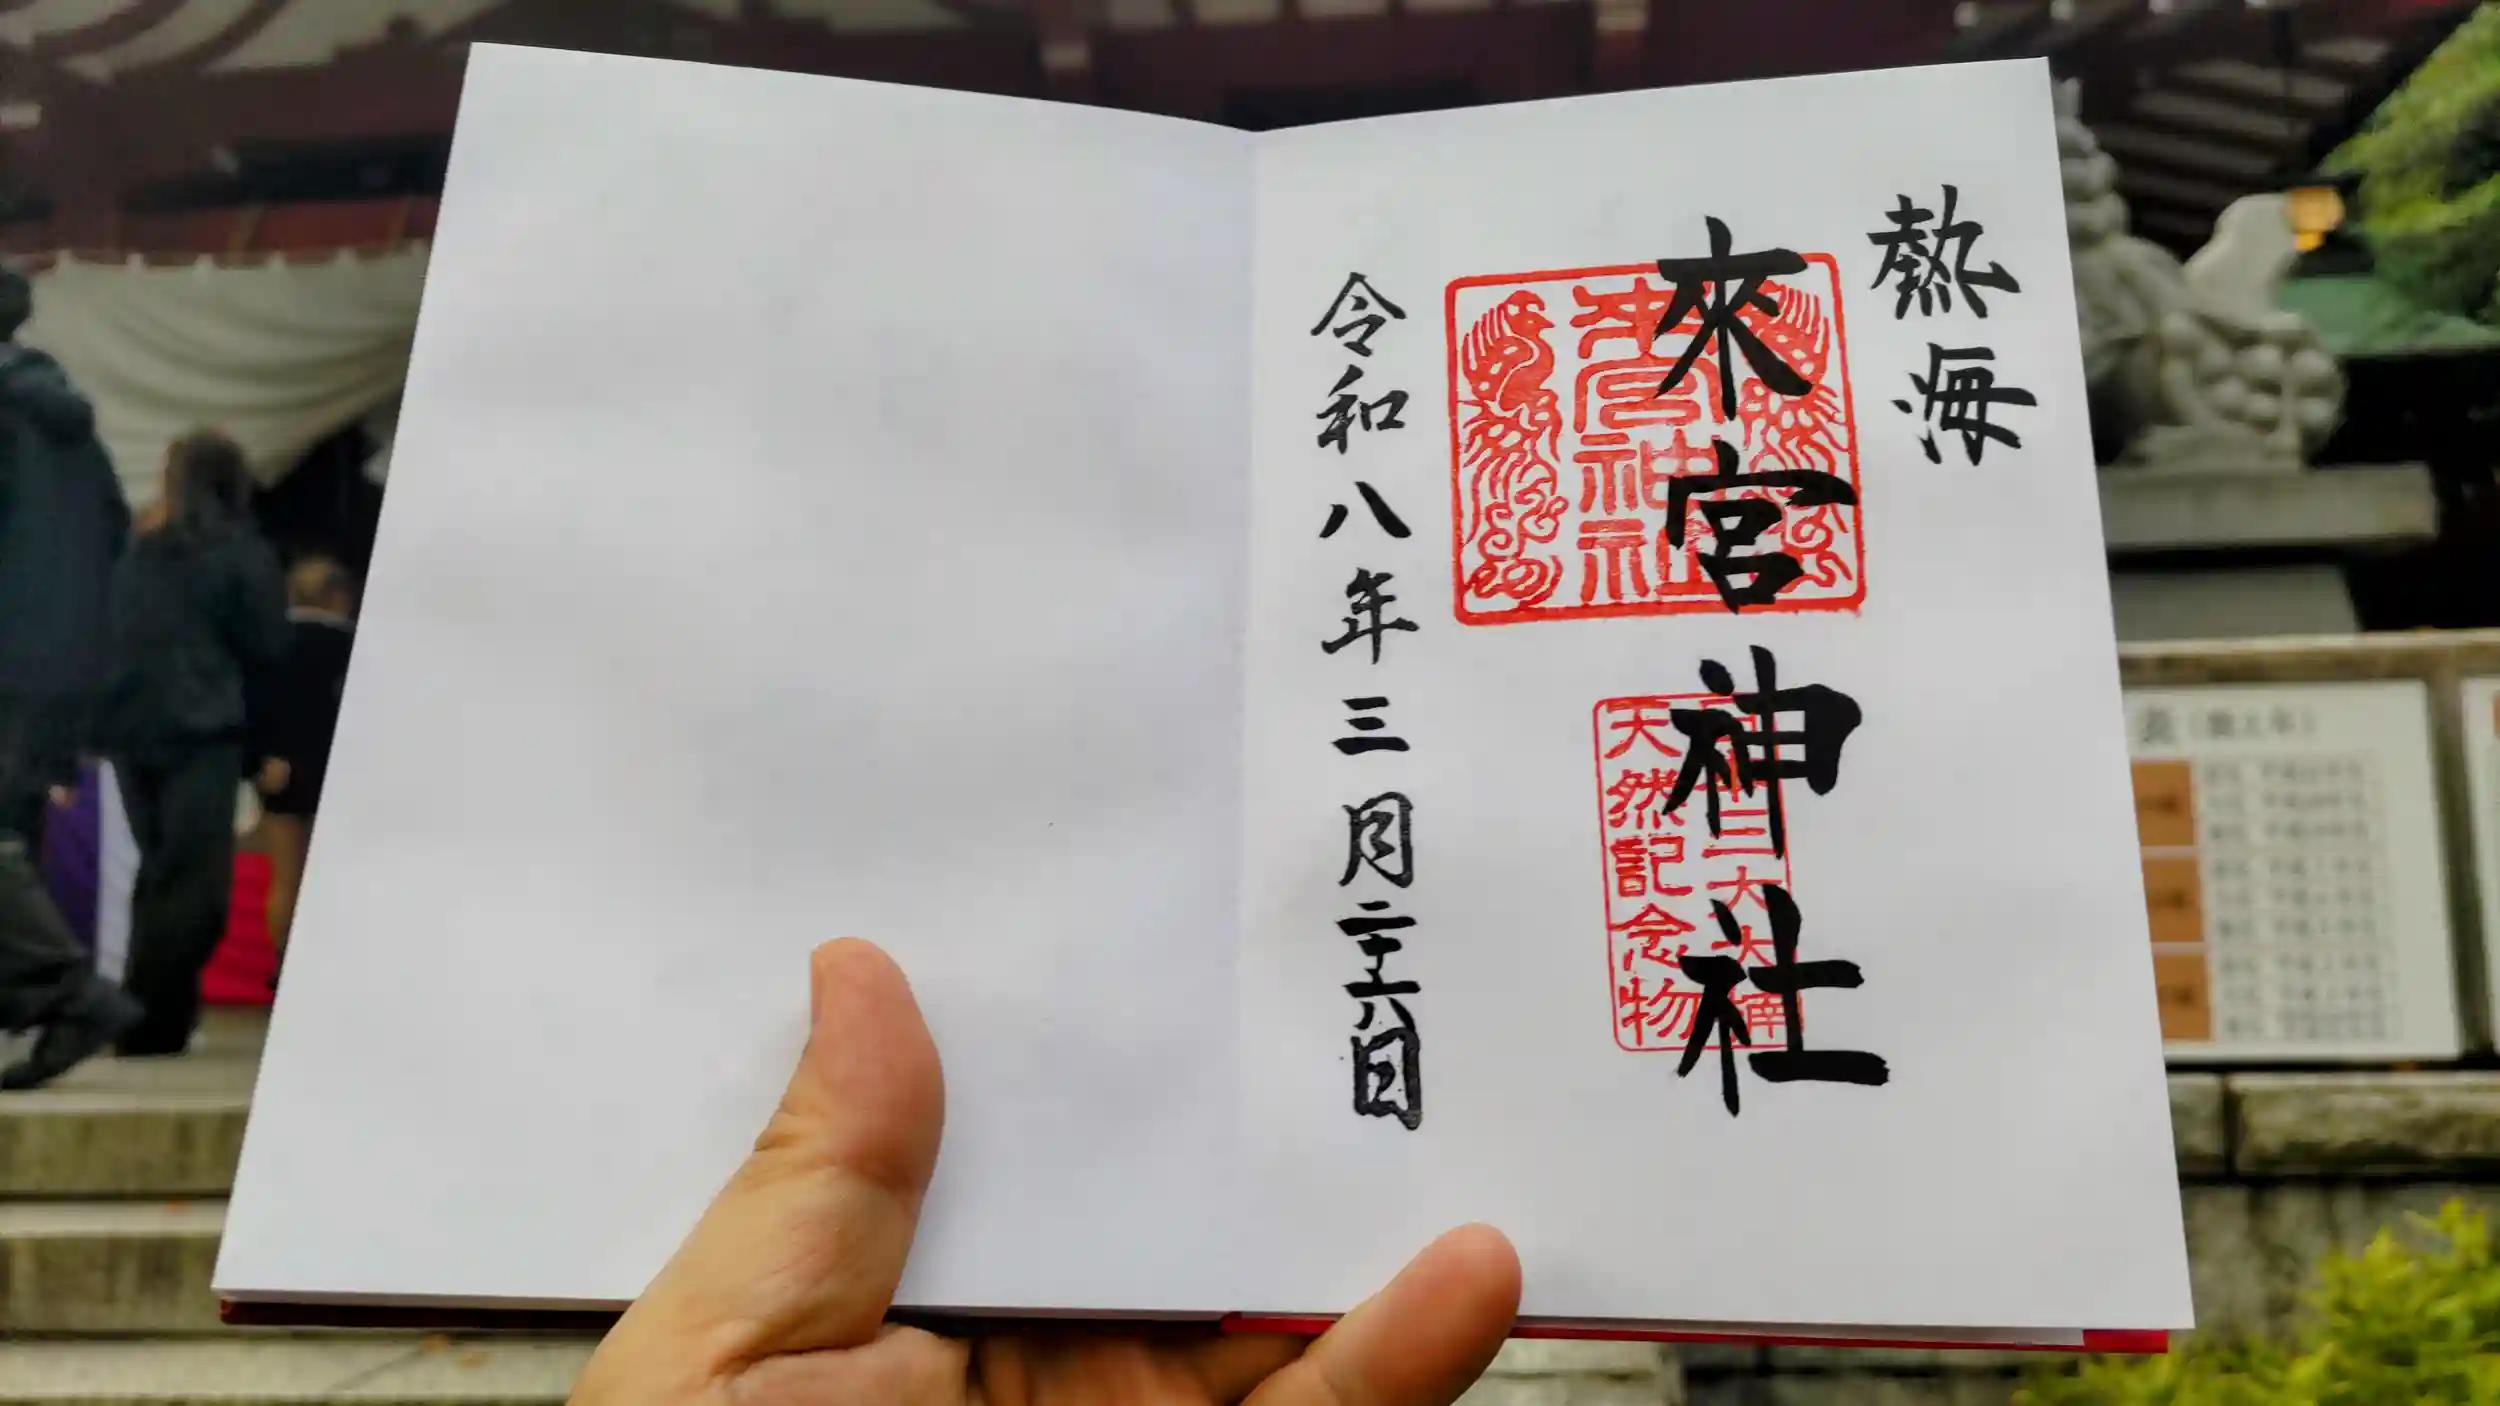 熱海
來宮神社
來宮神社
本州三大大楠
天然記念物
令和八年三月二十六日